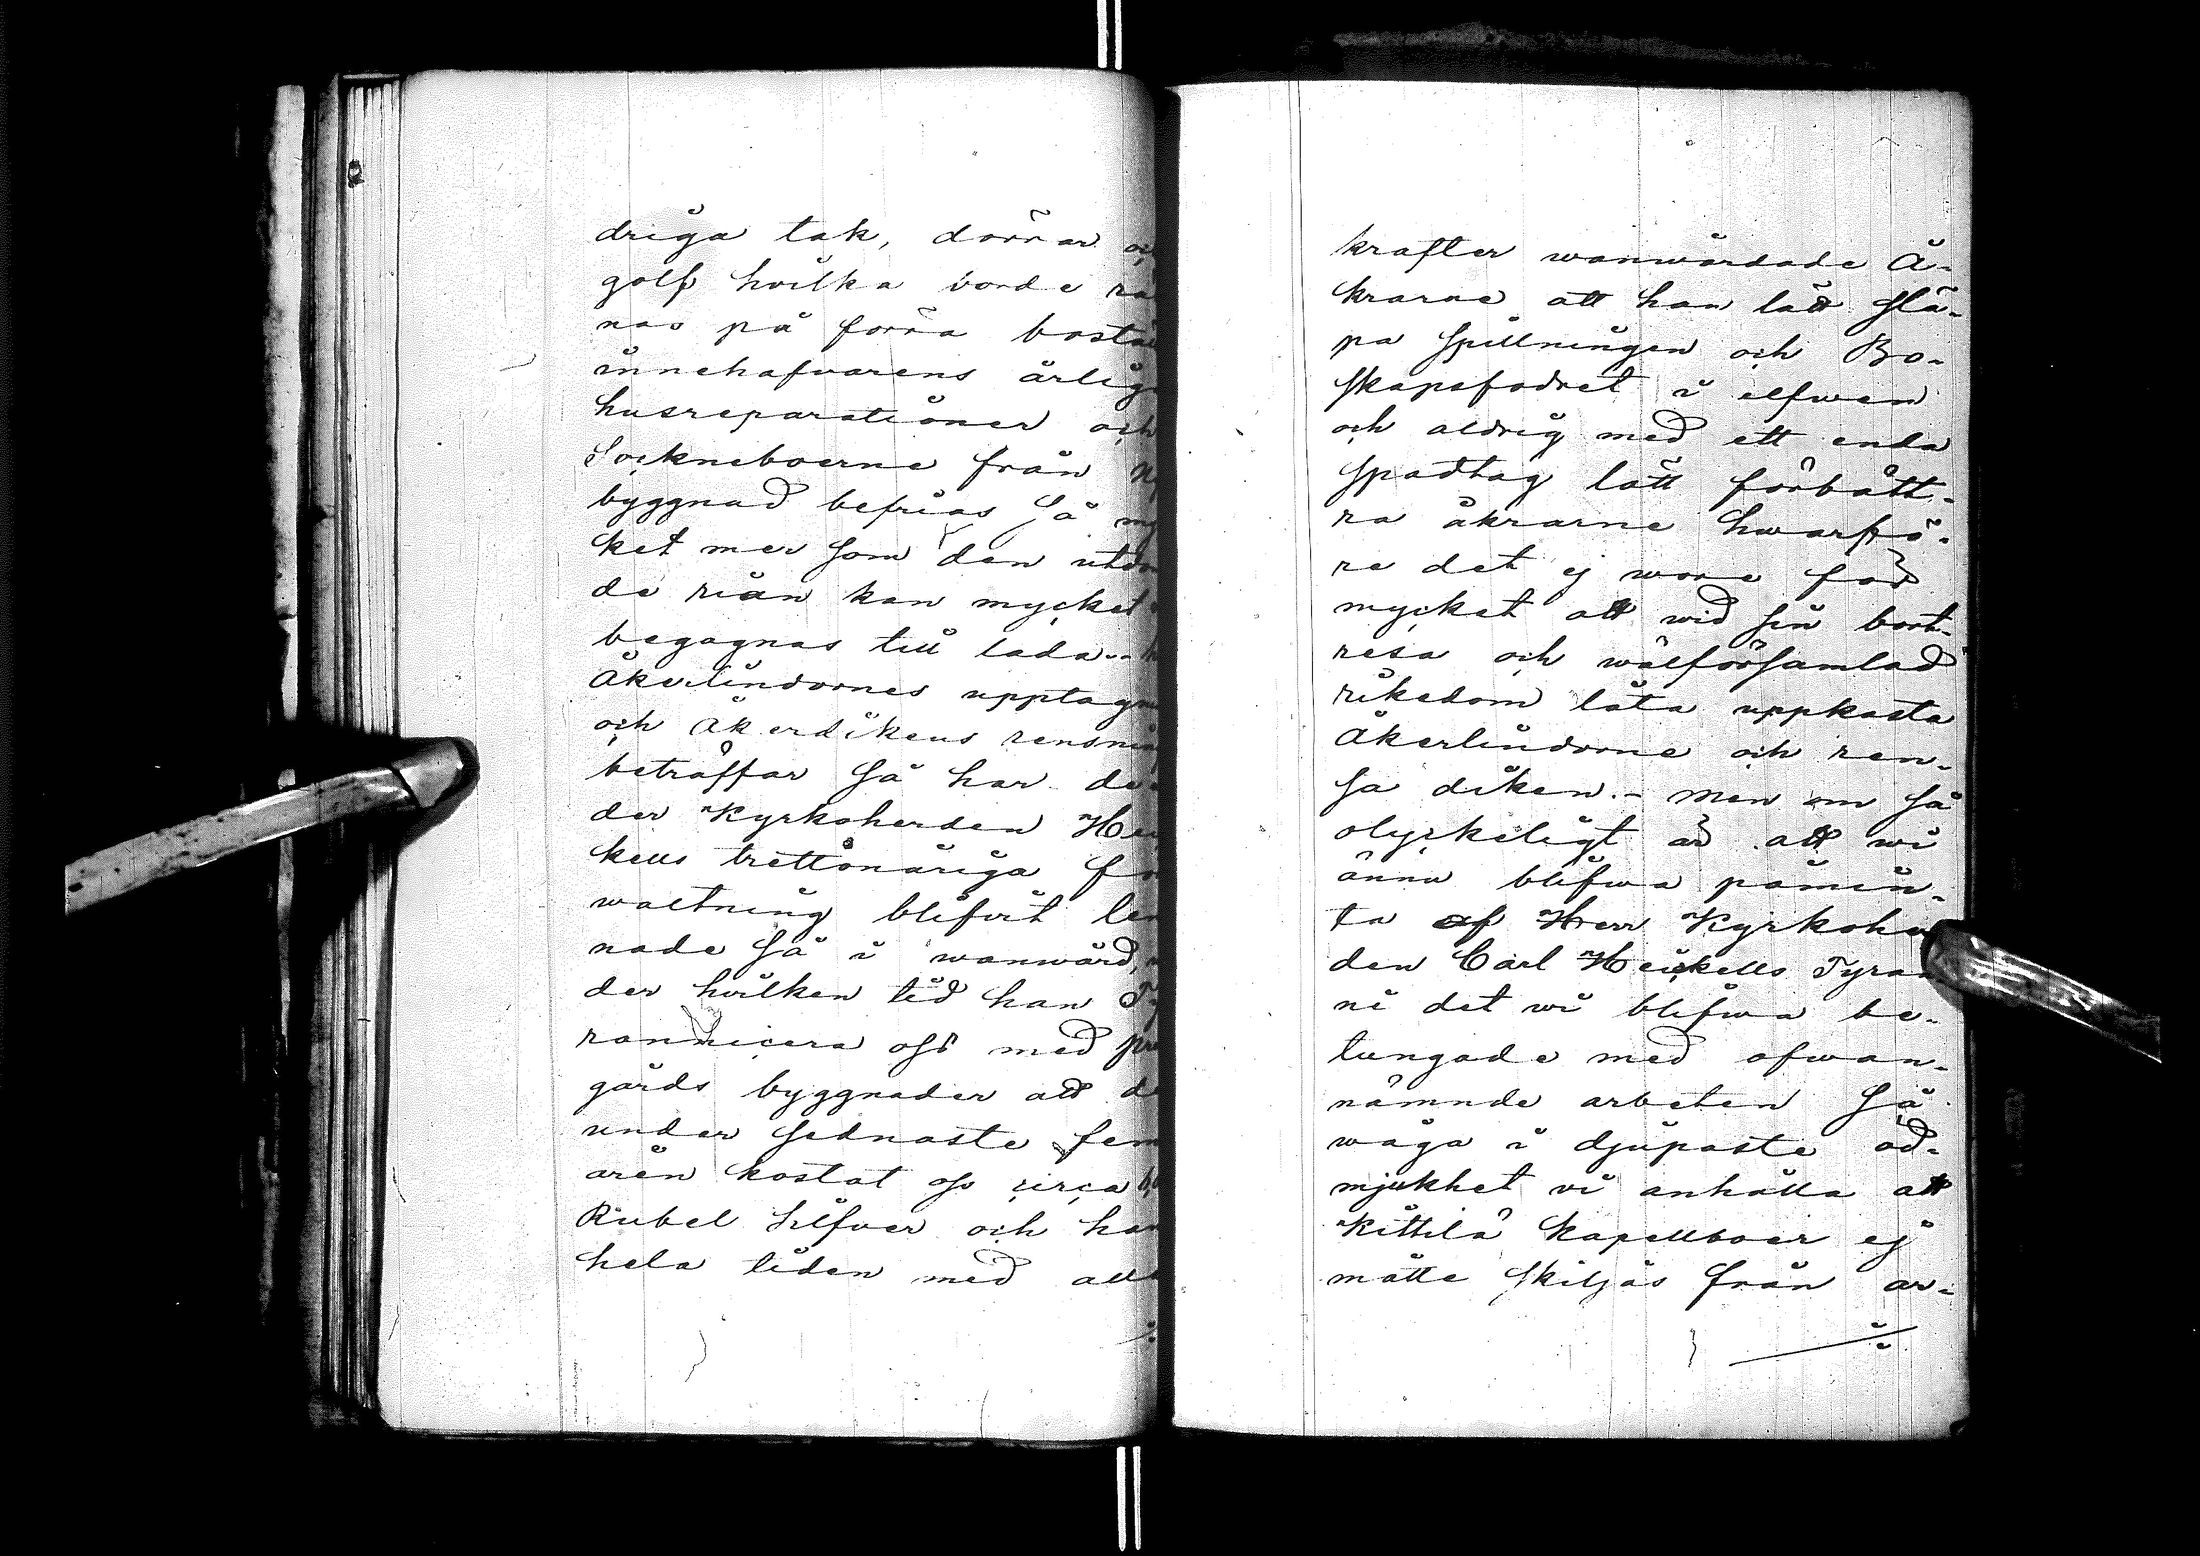 driga tak, dörrar
golf hvilka borde
nas på förra
innehafvarens
husreparationer och
Sockneboerne från
byggnad befrias Så
ket mer som den
de riån kan mycket
begagnas till lada..
Åkerlindornes
och Åkerdikens
beträffar så har
der Kyrkoherden
kells trettonåriga
waltning blifvit
nade så i wanwård,
der hvilken tid han
rannicera oss med
gårds byggnader att
under sednaste fem
åren kostat oss circa
Rubel Silfver och
hela tiden med
krafter wanwårdade Å-
krarne att han lätt slä-
pa spillningen och Bo-
skapsfodret i elfwen
och aldrig med ett enda
spadtag lätt förbätt-
ra åkrarne hwarfö-
re det ej wore för
mycket att wid sin bort-
resa och wälförsamlad
rikedom låta uppkasta
Åkerlindorne och ren-
sa diken.- men om så
olyckeligt är att wi
ännu blifwa påmin-
ta af Herr
den Carl Heickells
ni det wi blifwa be-
tungade med ofwan-
nämnde arbeten Så
wåga i djupaste öd-
mjukhet vi anhålla att
Kittilä Kapellboer ej
måtte skiljas från ar-